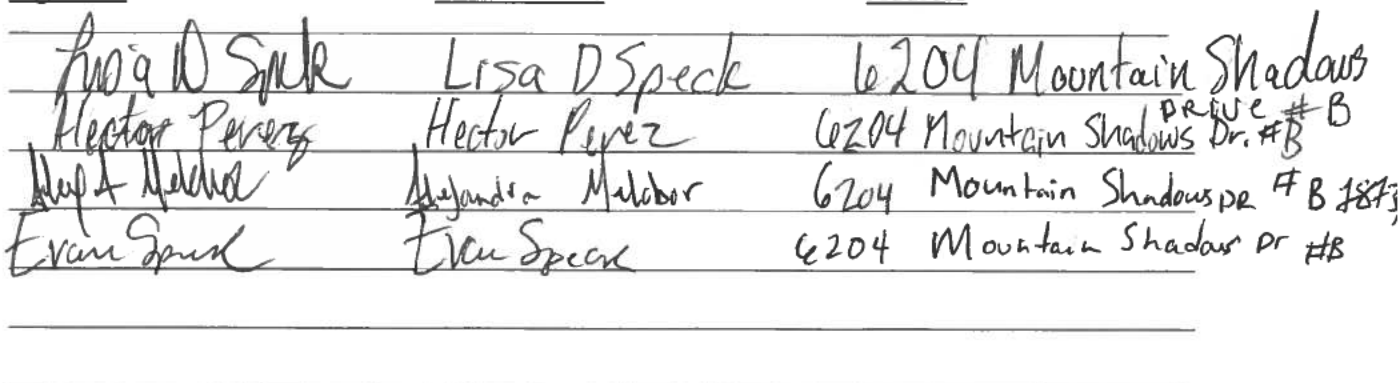 Lisa D Speck Lisa D Speck 6204 Mountain Shadows
DRIVE # B
Hector Perez Hector Perez 6204 Mountain Shadows Dr. #B
A Melchor Alejandra Melchor 6204 Mountain Shadows DR # B
Evan Speck Evan Speck 6204 Mountain Shadows Dr #B